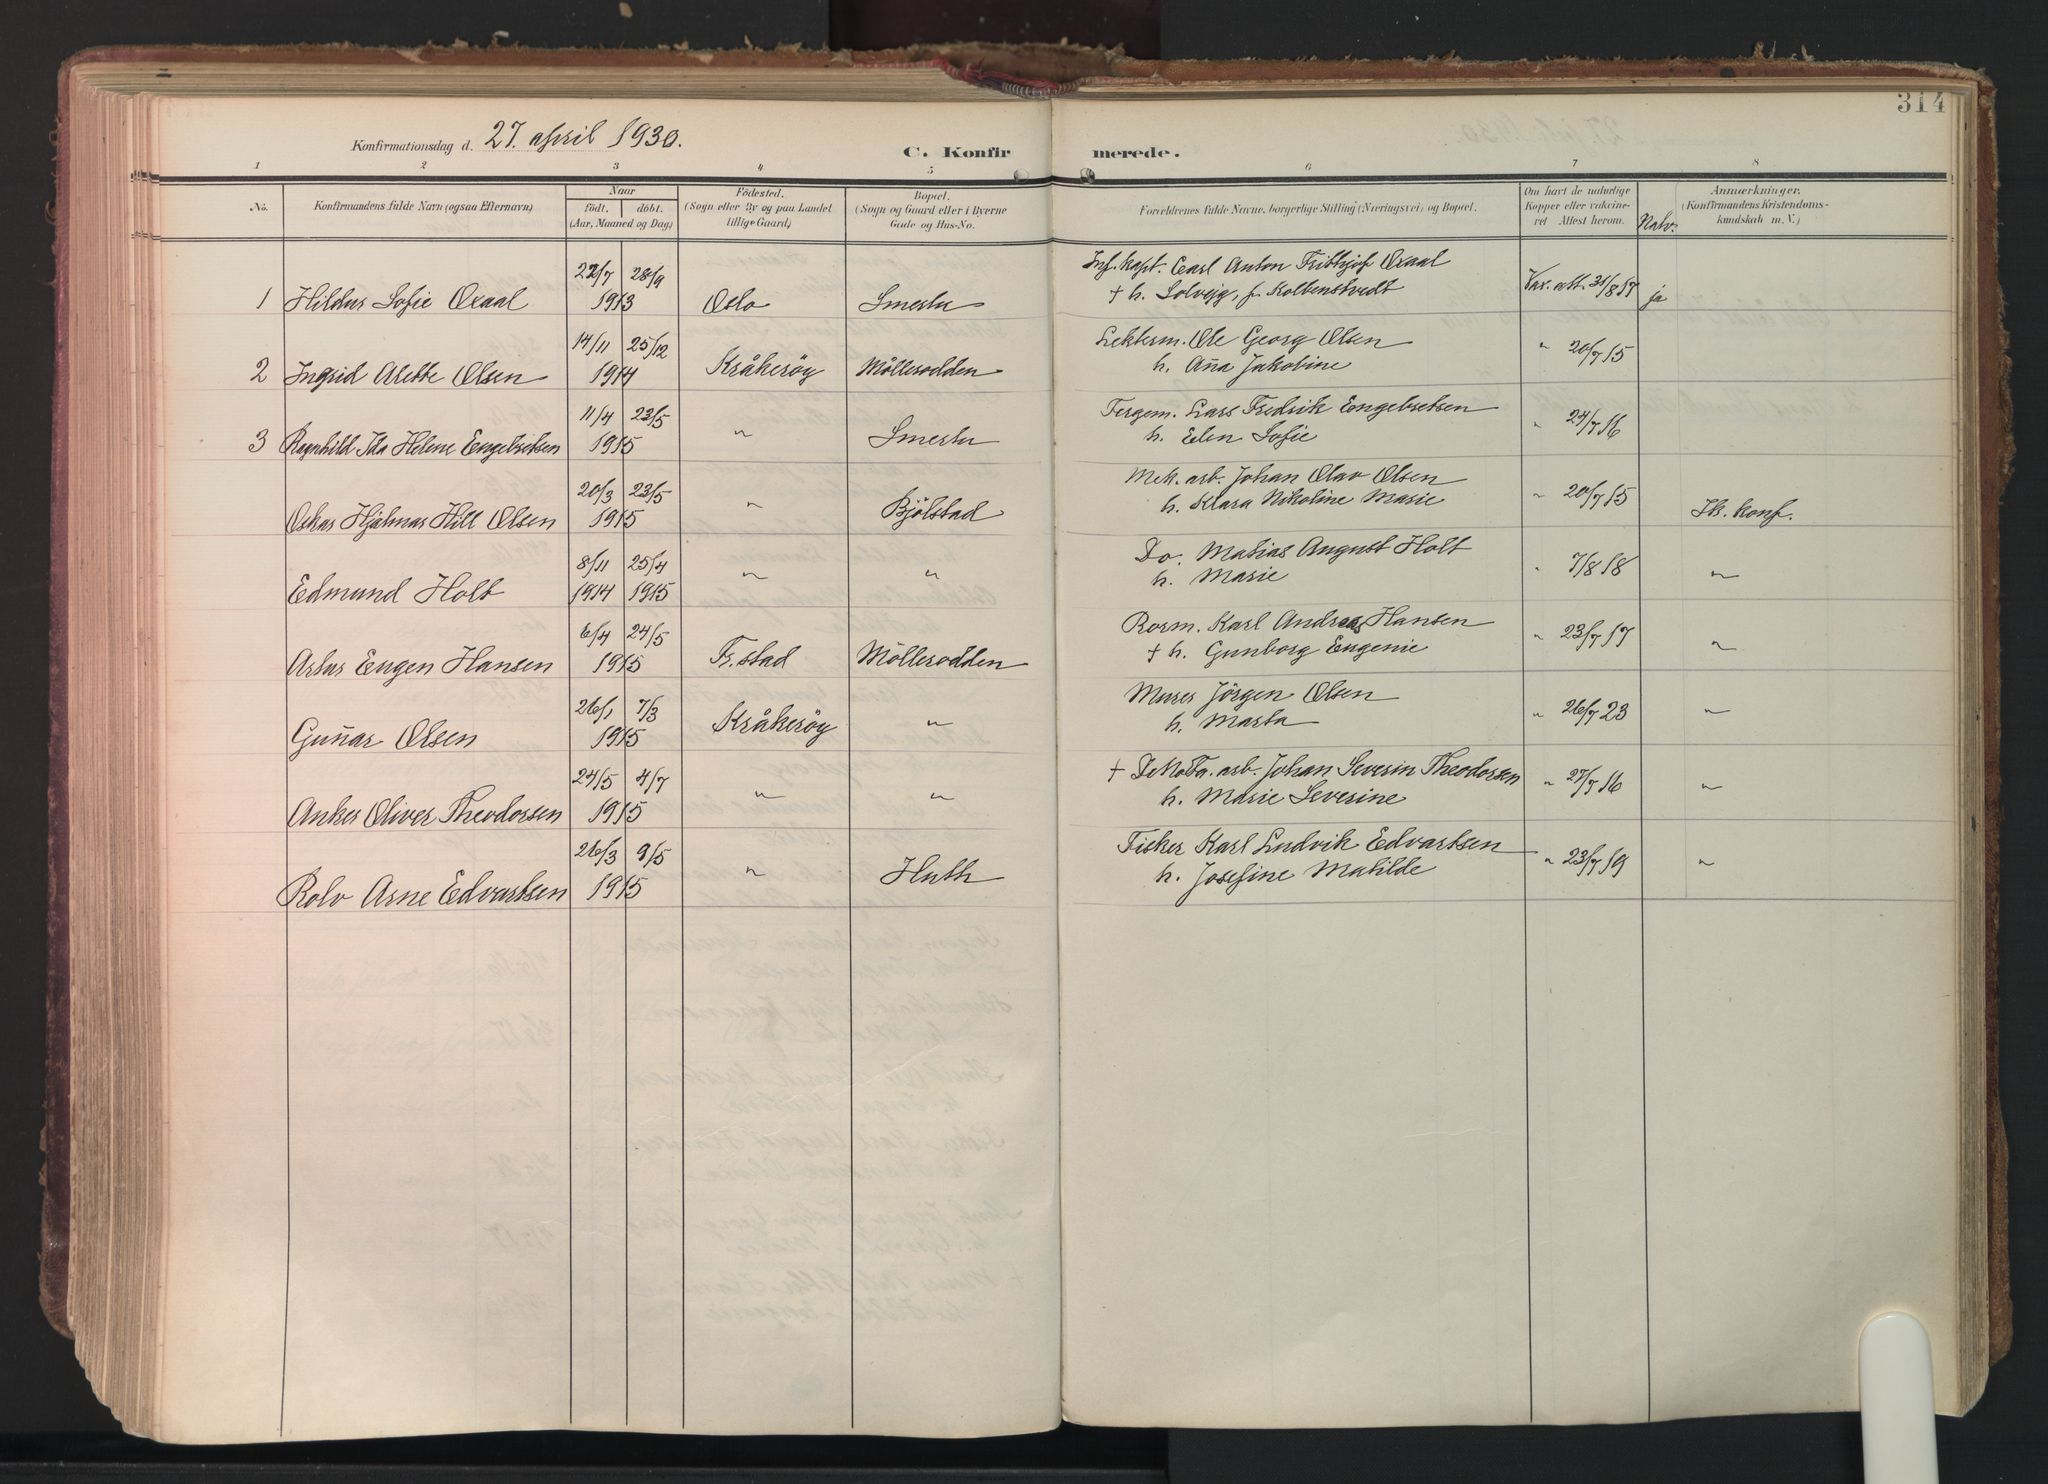 314
Konfirmationsdag d. 27. april 1930.
C. Konfirmerede.
1 2 3 4 5 6 7 8
No. Konfirmandens fulde Navn (ogsaa Efternavn) Naar født. døbt. (Aar, Maaned og Dag) Fødested. (Sogn eller By og paa Landet tillige Gaard) Bopæl. (Sogn og Gaard eller i Byerne Gade og Hus-No. Forældrenes fulde Navne, borgerlige Stilling (Næringsvei) og Bopæl. Om havt de naturlige Kopper eller vakcineret Attest herom. Natv. Anmærkninger. (Konfirmandens Kristendomskundskab m. V.)
22/7 28/9 Inf. kapt. Carl Anton Frithjof Oxaal
1 Hildur Sofie Oxaal 1913 Oslo Smertu + h. Solvejg, f. Kolbenstvedt Vax. att. 31/8 17 ja
14/11 25/12 Lekterm. Ole Georg Olsen
2 Ingrid Arette Olsen 1914 Kråkerøy Møllerodden h. Aña Jakobine " 20/7 15
11/4 23/5 Fergem. Lars Fredrik Engebretsen
3 Ragnhild Ida Helene Engebretsen 1915 " Smertu h. Elen Sofie " 24/7 16
20/3 23/5 Mek. arb. Johan Olav Olsen
Oskar Hjalmar Hill Olsen 1915 " Bjølstad h. Klara Nikoline Marie " 20/7 15 Ik. konf.
8/11 25/4 Do. Matias August Holt
Edmund Holt 1914 1915 " " h. Marie " 7/8 18 "
6/4 24/5 Rorm. Karl Andreas Hansen
Artur Eugen Hansen 1915 Fr.stad Møllerodden + h. Gunborg Eugenie " 23/7 17 "
26/1 7/3 Murer Jørgen Olsen
Guñar Olsen 1915 Kråkerøy " h. Marta " 26/7 23 "
24/5 4/7 + arb. Johan Severin Theodorsen
Anker Oliver Theodorsen 1915 " " h. Marie Severine " 27/7 16 "
26/3 9/5 Fisker Karl Ludvik Edvartsen
Rolv Arne Edvartsen 1915 " Huth h. Josefine Matilde " 23/7 19 "